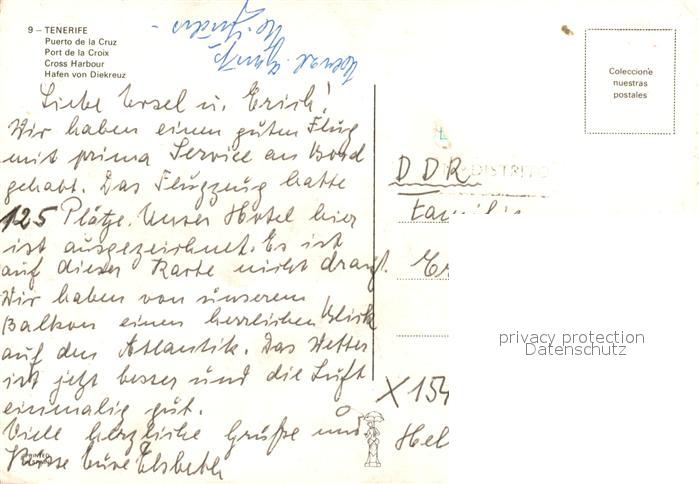 9 – TENERIFE
Puerto de la Cruz
Port de la Croix
Cross Harbour
Hafen von Diekreuz
Coleccione
nuestras
postales
Liebe Ursel u. Erich!
Wir haben einen guten Flug
mit prima Service an Bord
gehabt. Das Flugzeug hatte
125 Plätze. Unser Hotel hier
ist ausgezeichnet. Es ist
auf dieser Karte nicht drauf.
Wir haben von unserem
Balkon einen herrlichen Blick
auf den Atlantik. Das Wetter
ist jetzt besser und die Luft
einmalig gut.
Viele herzliche Grüße und
Küsse Eure Elsbeth
DISTRITO
DDR
Familie
Er
X 154
Hel
privacy protection
Datenschutz